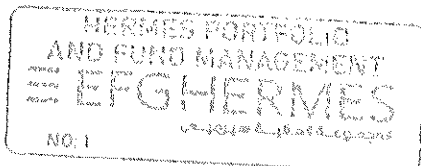 HERMES PORTFOLIO
AND FUND MANAGEMENT
EFG HERMES
NO: 1